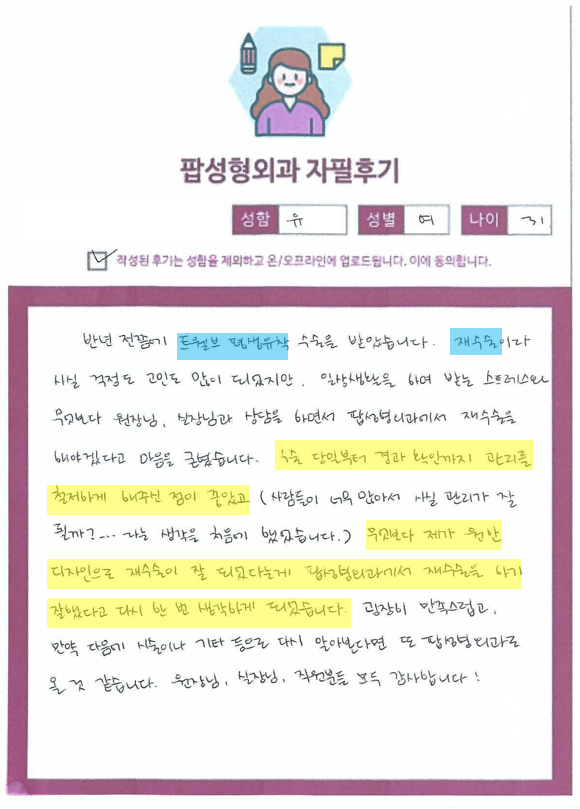 팝성형외과 자필후기
성함 유 성별 여 나이 31
작성된 후기는 성함을 제외하고 온/오프라인에 업로드됩니다. 이에 동의합니다.
반년 전쯤에 트웰브 평생유착 수술을 받았습니다. 재수술이라
사실 걱정도 고민도 많이 되었지만, 일상생활을 하며 받는 스트레스와
무엇보다 원장님, 실장님과 상담을 하면서 팝성형외과에서 재수술을
해야겠다고 마음을 굳혔습니다. 수술 당일부터 경과 확인까지 관리를
철저하게 해주신 점이 좋았고 (사람들이 너무 많아서 사실 관리가 잘
될까?... 라는 생각을 처음에 했었습니다.) 무엇보다 제가 원한
디자인으로 재수술이 잘 되었다는게 팝성형외과에서 재수술을 하기
잘했다고 다시 한 번 생각하게 되었습니다. 굉장히 만족스럽고,
만약 다음에 시술이나 기타 등으로 다시 알아본다면 또 팝성형외과로
올 것 같습니다. 원장님, 실장님, 직원분들 모두 감사합니다!